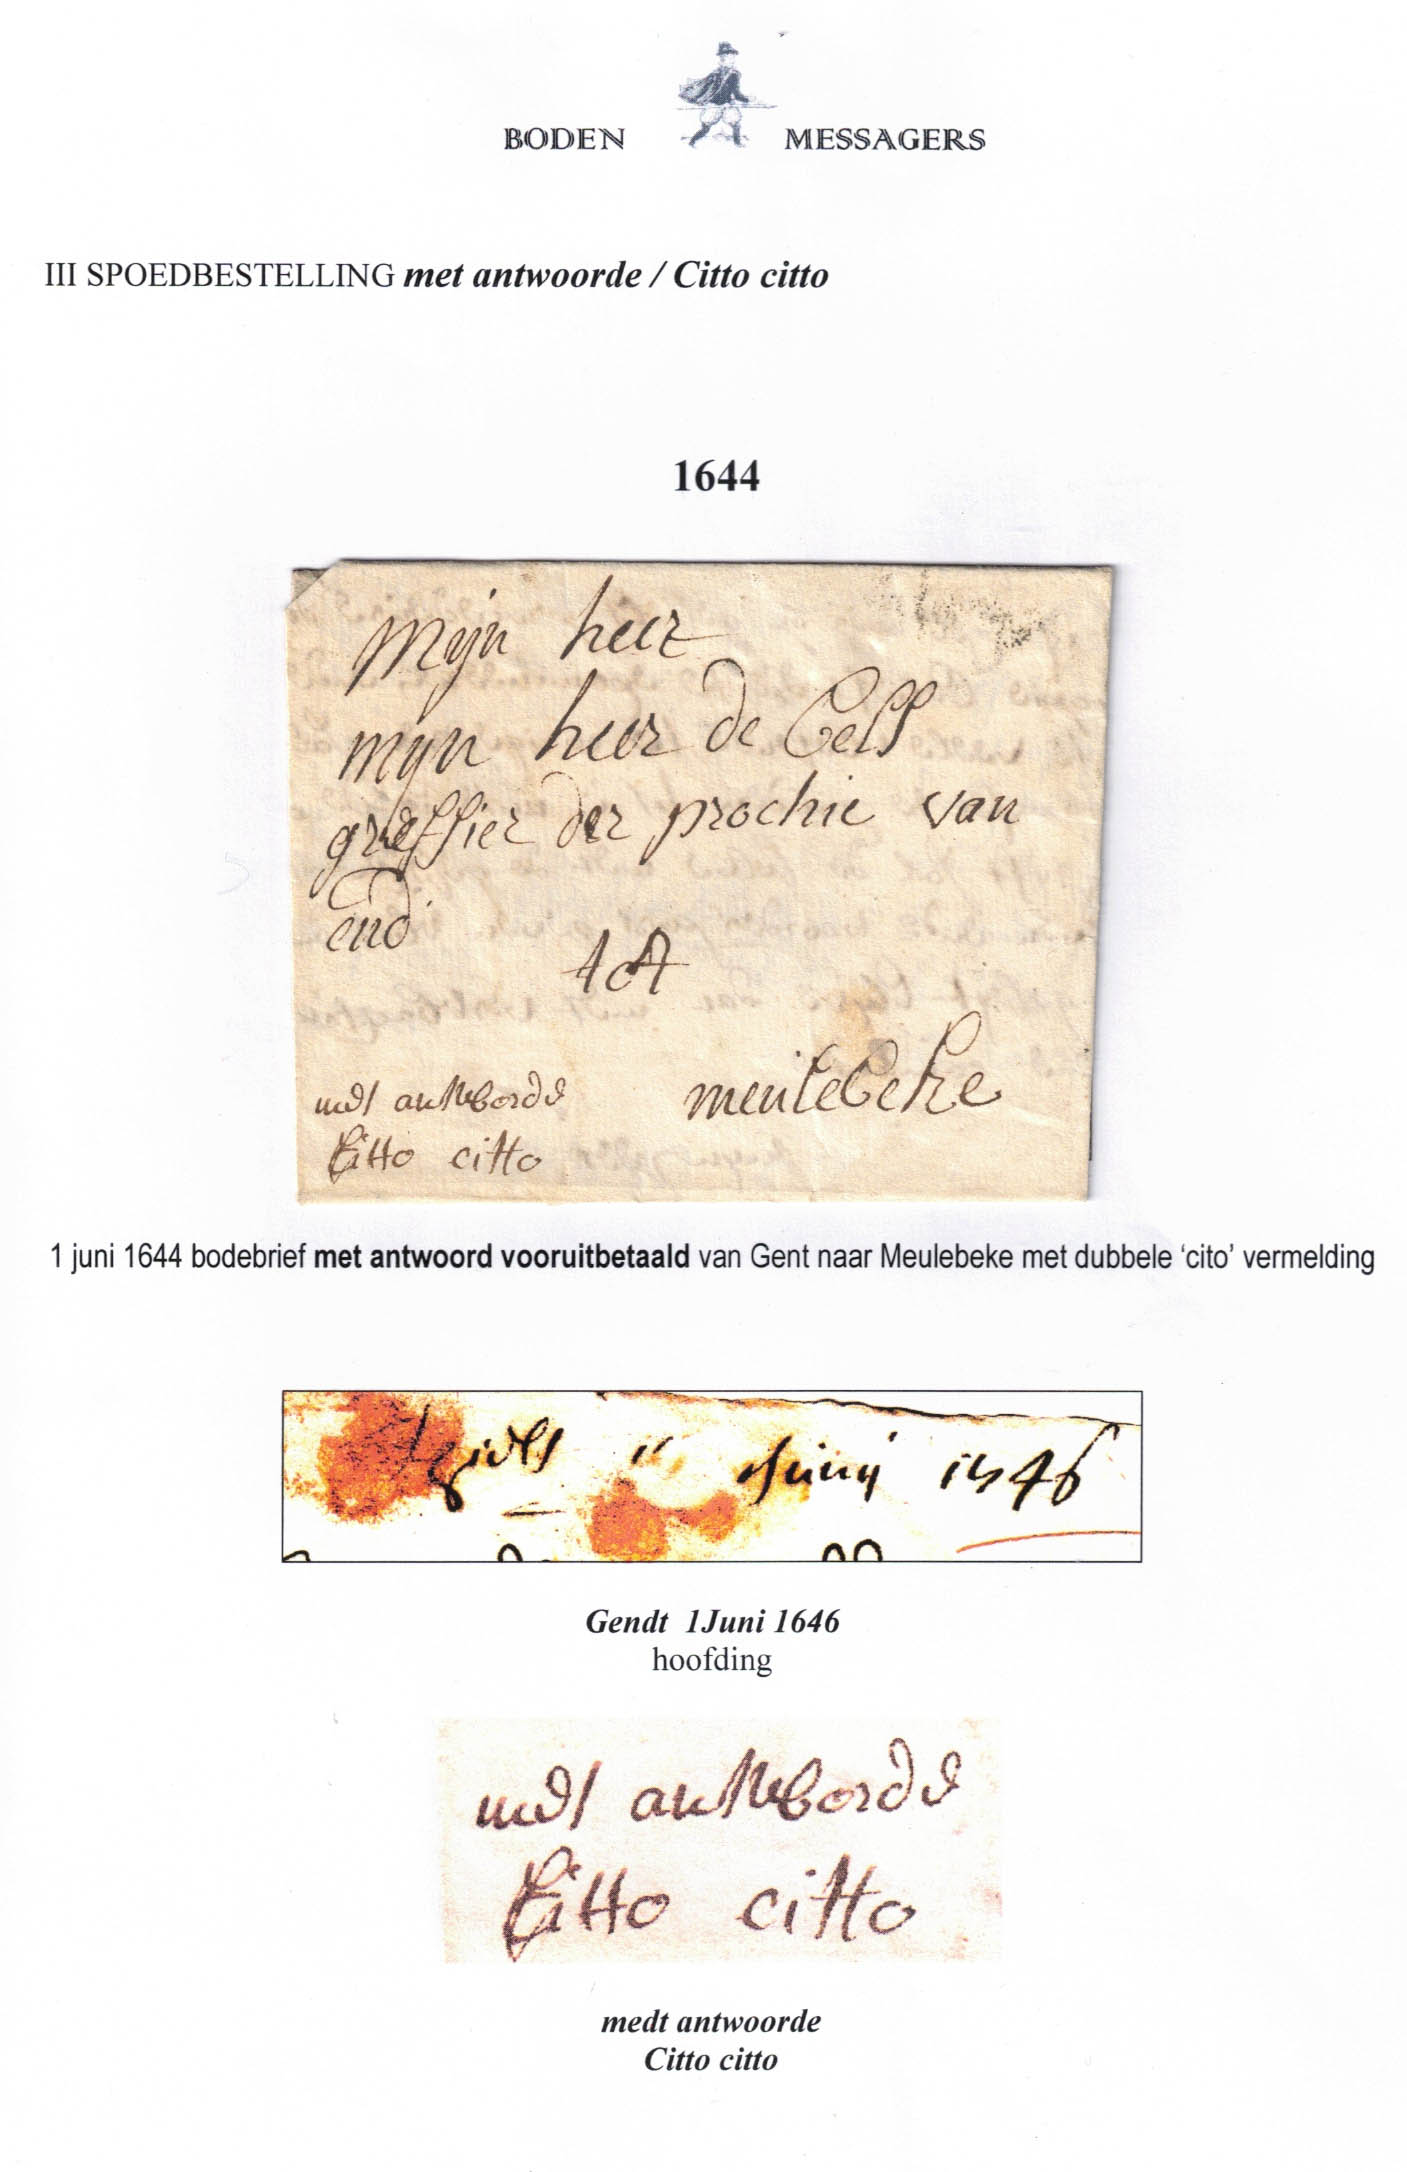 BODEN MESSAGERS
III SPOEDBESTELLING met antwoorde / Citto citto
1644
Mijn heer
mijn heer de
greffier der prochie van
end
tot
meulebeke
medt antwoorde
Citto citto
1 juni 1644 bodebrief met antwoord vooruitbetaald van Gent naar Meulebeke met dubbele ‘cito’ vermelding
Junij 1646
Gendt 1Juni 1646
hoofding
medt antwoorde
Citto citto
medt antwoorde
Citto citto